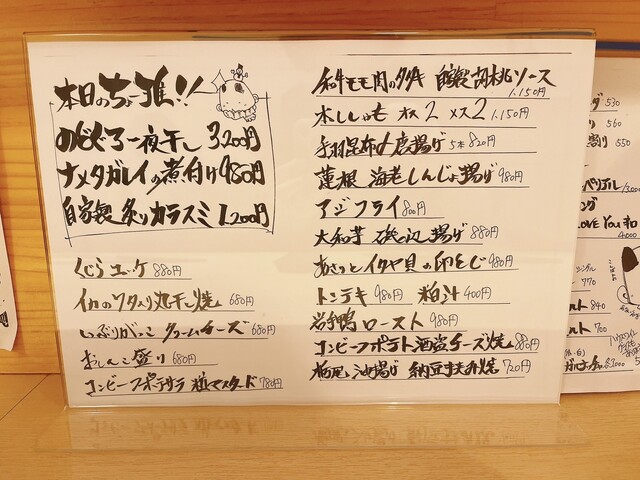 本日のちょー推!!
のどぐろ一夜干し 3,200円
ナメタガレイの煮付け 980円
自家製 炙りカラスミ 1,200円
くじらユッケ 880円
イカのワタ入り丸干し焼 680円
いぶりがっこ クリームチーズ 680円
おしんこ盛り 680円
コンビーフポテサラ 粒マスタード 780円
和牛モモ肉のタタキ 自家製 胡桃ソース
1,150円
本ししゃも オス2 メス2 1,150円
手羽昆布〆唐揚げ 5本 820円
蓮根 海老しんじょ揚げ 980円
アジフライ 800円
大和芋 磯辺揚げ 880円
あさつきとイタヤ貝の卵とじ 980円
トンテキ 980円 粕汁 400円
岩手鴨ロースト 980円
コンビーフポテト酒盗チーズ焼 880円
栃尾油揚げ 納豆はさみ焼 720円
530
560
550
LOVE You
4,000
770
840
700